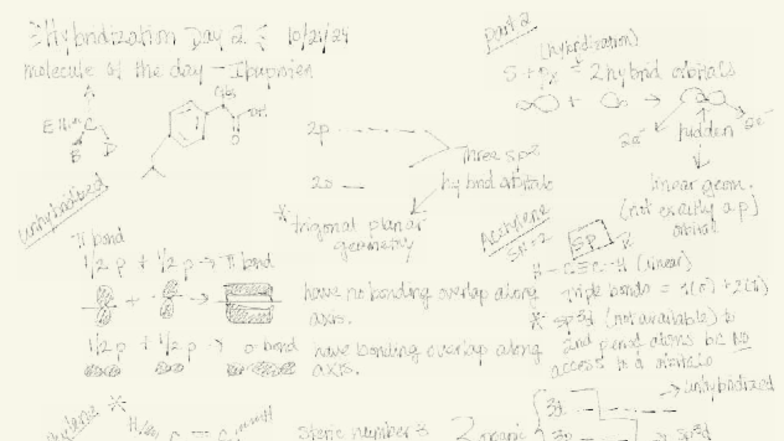 Hybridization Day 2 10/21/24
molecule of the day - Ibuprofen
CH3
OH
O
A
E C
B D
unhybridized
π bond
1/2 p + 1/2 p → π bond
have no bonding overlap along
axis.
1/2 p + 1/2 p → σ bond
have bonding overlap along
axis.
2p
2s
Three sp2
hybrid orbitals
* trigonal planar
geometry
part 2
(hybridization)
S + px = 2 hybrid orbitals
+ →
2e- hidden 2e-
linear geom.
(not exactly a p)
orbital
Acetylene
SN=2
sp
H - C≡C - H (linear)
Triple bonds = 1(σ) + 2(π)
* sp3d (not available) to
2nd period atoms bc NO
access to d orbitals
→ unhybridized
3d
3p → sp3d
steric number 3
2 organic
H C = C H